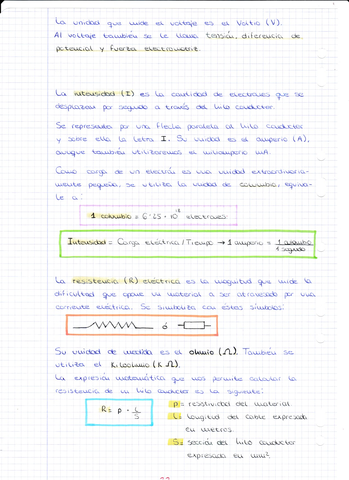 La unidad que mide el voltaje es el Voltio (V).
Al voltaje también se le llama tensión, diferencia de
potencial y fuerza electromotriz.
La intensidad (I) es la cantidad de electrones que se
desplazan por segundo a través del hilo conductor.
Se representa por una flecha paralela al hilo conductor
y sobre ella la letra I. Su unidad es el amperio (A),
aunque también utilizaremos el miliamperio mA.
Como carga de un electrón es una unidad extraordinaria-
mente pequeña, se utiliza la unidad de coulombio, equiva-
le a:
1 coulombio = 6'25 · 10¹⁸ electrones.
Intensidad = Carga eléctrica / Tiempo → 1 amperio = 1 coulombio / 1 segundo
La resistencia (R) eléctrica es la magnitud que mide la
dificultad que opone un material a ser atravesado por una
corriente eléctrica. Se simboliza con estos símbolos:
ó
Su unidad de medida es el ohmio (Ω). También se
utiliza el Kiloohmio (KΩ).
La expresión matemática que nos permite calcular la
resistencia de un hilo conductor es la siguiente:
R = ρ · L / S
ρ = resistividad del material
L = longitud del cable expresada
en metros.
S = sección del hilo conductor
expresada en mm².